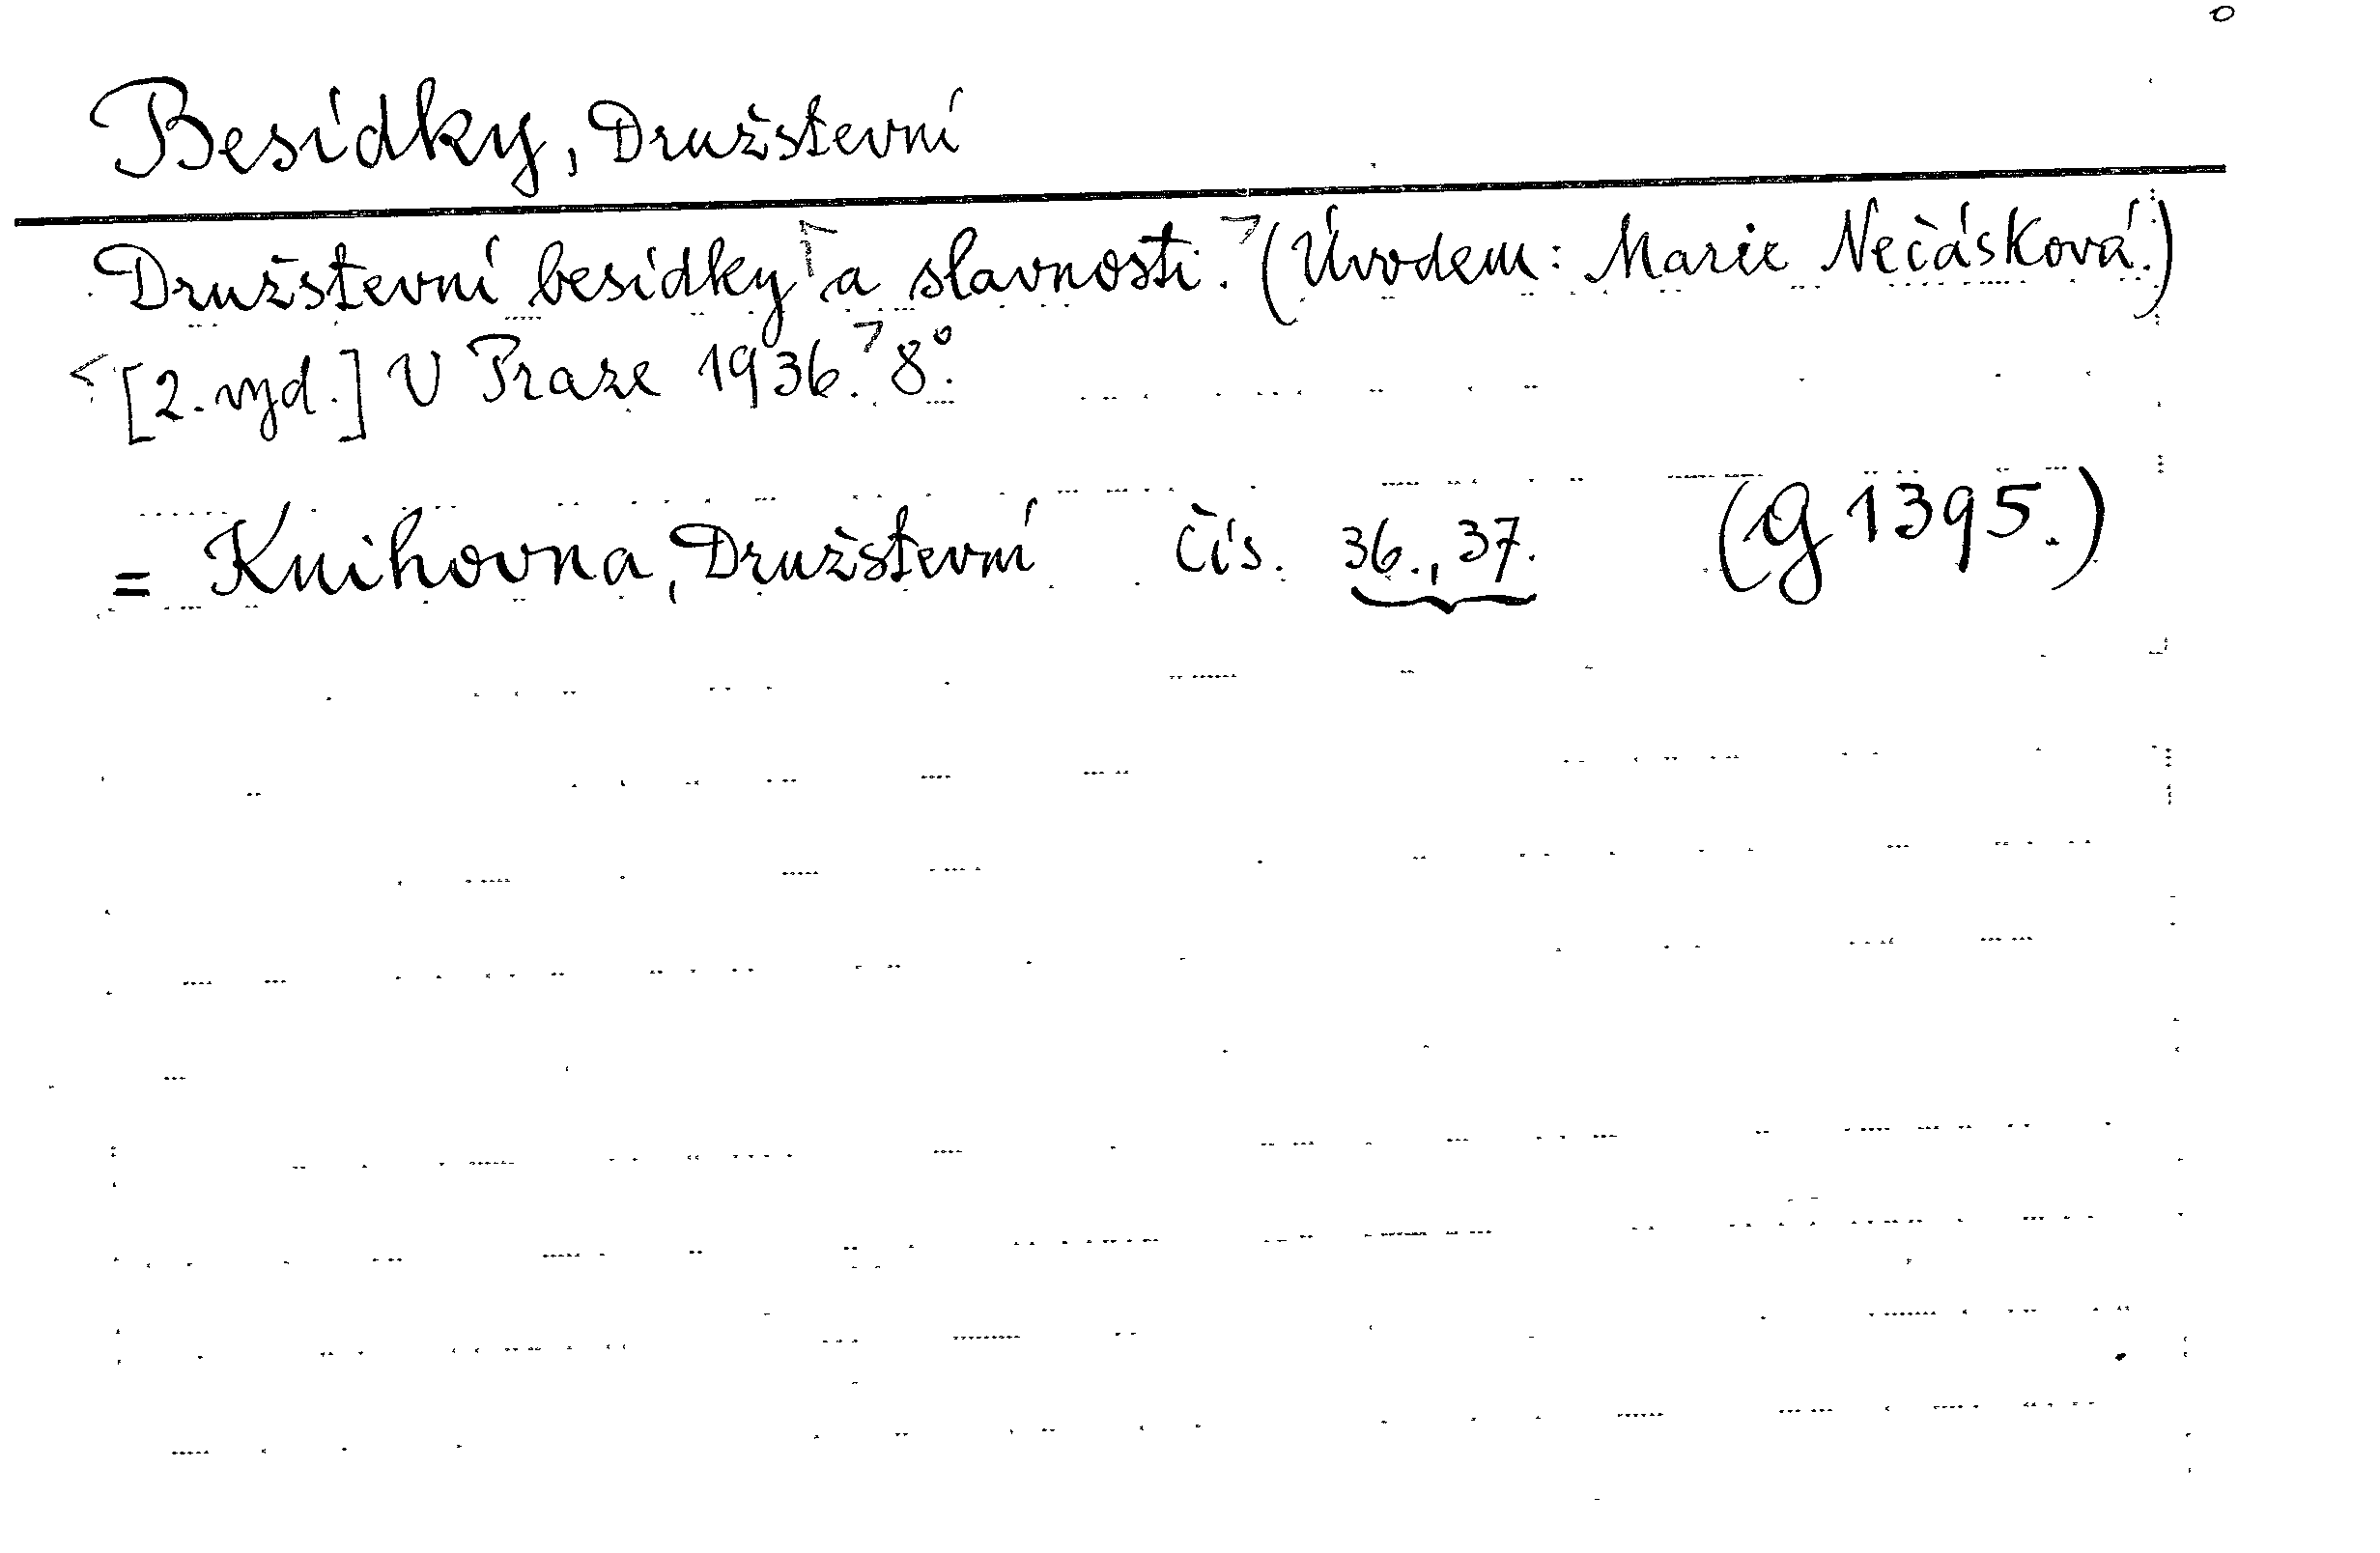 Besídky, Družstevní
Družstevní besídky a slavnosti. (Úvodem: Marie Nečásková.)
[2. vyd.] V Praze 1936. 8°.
= Knihovna, Družstevní čís. 36., 37. (G 1395.)